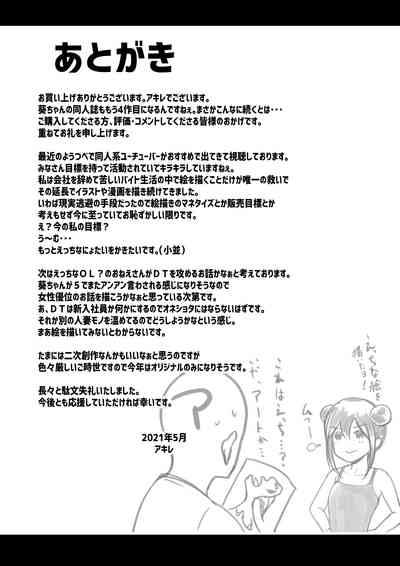 あとがき
お買い上げありがとうございます。アキレでございます。
葵ちゃんの同人誌ももう4作目になるんですねぇ。まさかこんなに続くとは・・・
ご購入してくださる方、評価・コメントしてくださる皆様のおかげです。
重ねてお礼を申し上げます。
最近のようつべで同人系ユーチューバーがおすすめで出てきて視聴しております。
みなさん目標を持って活動されていてキラキラしていますねぇ。
私は会社を辞めて苦しいバイト生活の中で絵を描くことだけが唯一の救いで
その延長でイラストや漫画を描き続けてきました。
いわば現実逃避の手段だったので絵描きのマネタイズとか販売目標とか
考えもせず今に至っていてお恥ずかしい限りです。
え？今の私の目標？
う～む・・・
もっとえっちなにょたいをかきたいです。（小並）
次はえっちなOL？のおねえさんがDTを攻めるお話かなぁと考えております。
葵ちゃんが5でまたアンアン言わされる感じになりそうなので
女性優位のお話を描こうかなぁと思っている次第です。
あ、DTは新入社員か何かにするのでオネショタにはならないはずです。
それか別の人妻モノを温めてるのでどうしようかなという感じ。
まあ絵を描いてみないとわからないです。
たまには二次創作なんかもいいなぁと思うのですが
色々厳しいご時世ですので今年はオリジナルのみになりそうです。
長々と駄文失礼いたしました。
今後とも応援していただければ幸いです。
2021年5月
アキレ
ア
これはえっち…？
いや、アートか…
えっちな絵を
描いたョ！
ムフー